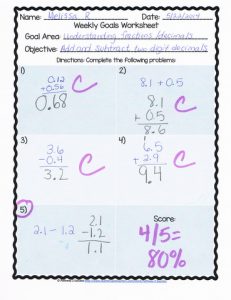 Name: Melissa R. Date: 5/22/14
Weekly Goals Worksheet
Goal Area: Understanding fractions/decimals
Objective: Add and subtract two digit decimals
Directions: Complete the following problems:
1)
0.12
+0.56
0.68
C
2)
8.1 + 0.5
8.1
+ 0.5
8.6
3)
3.6
-0.4
3.2
C
4)
6.5
+ 2.9
9.4
C
5)
2.1 - 1.2
2.1
-1.2
1.1
Score:
4/5=
80%